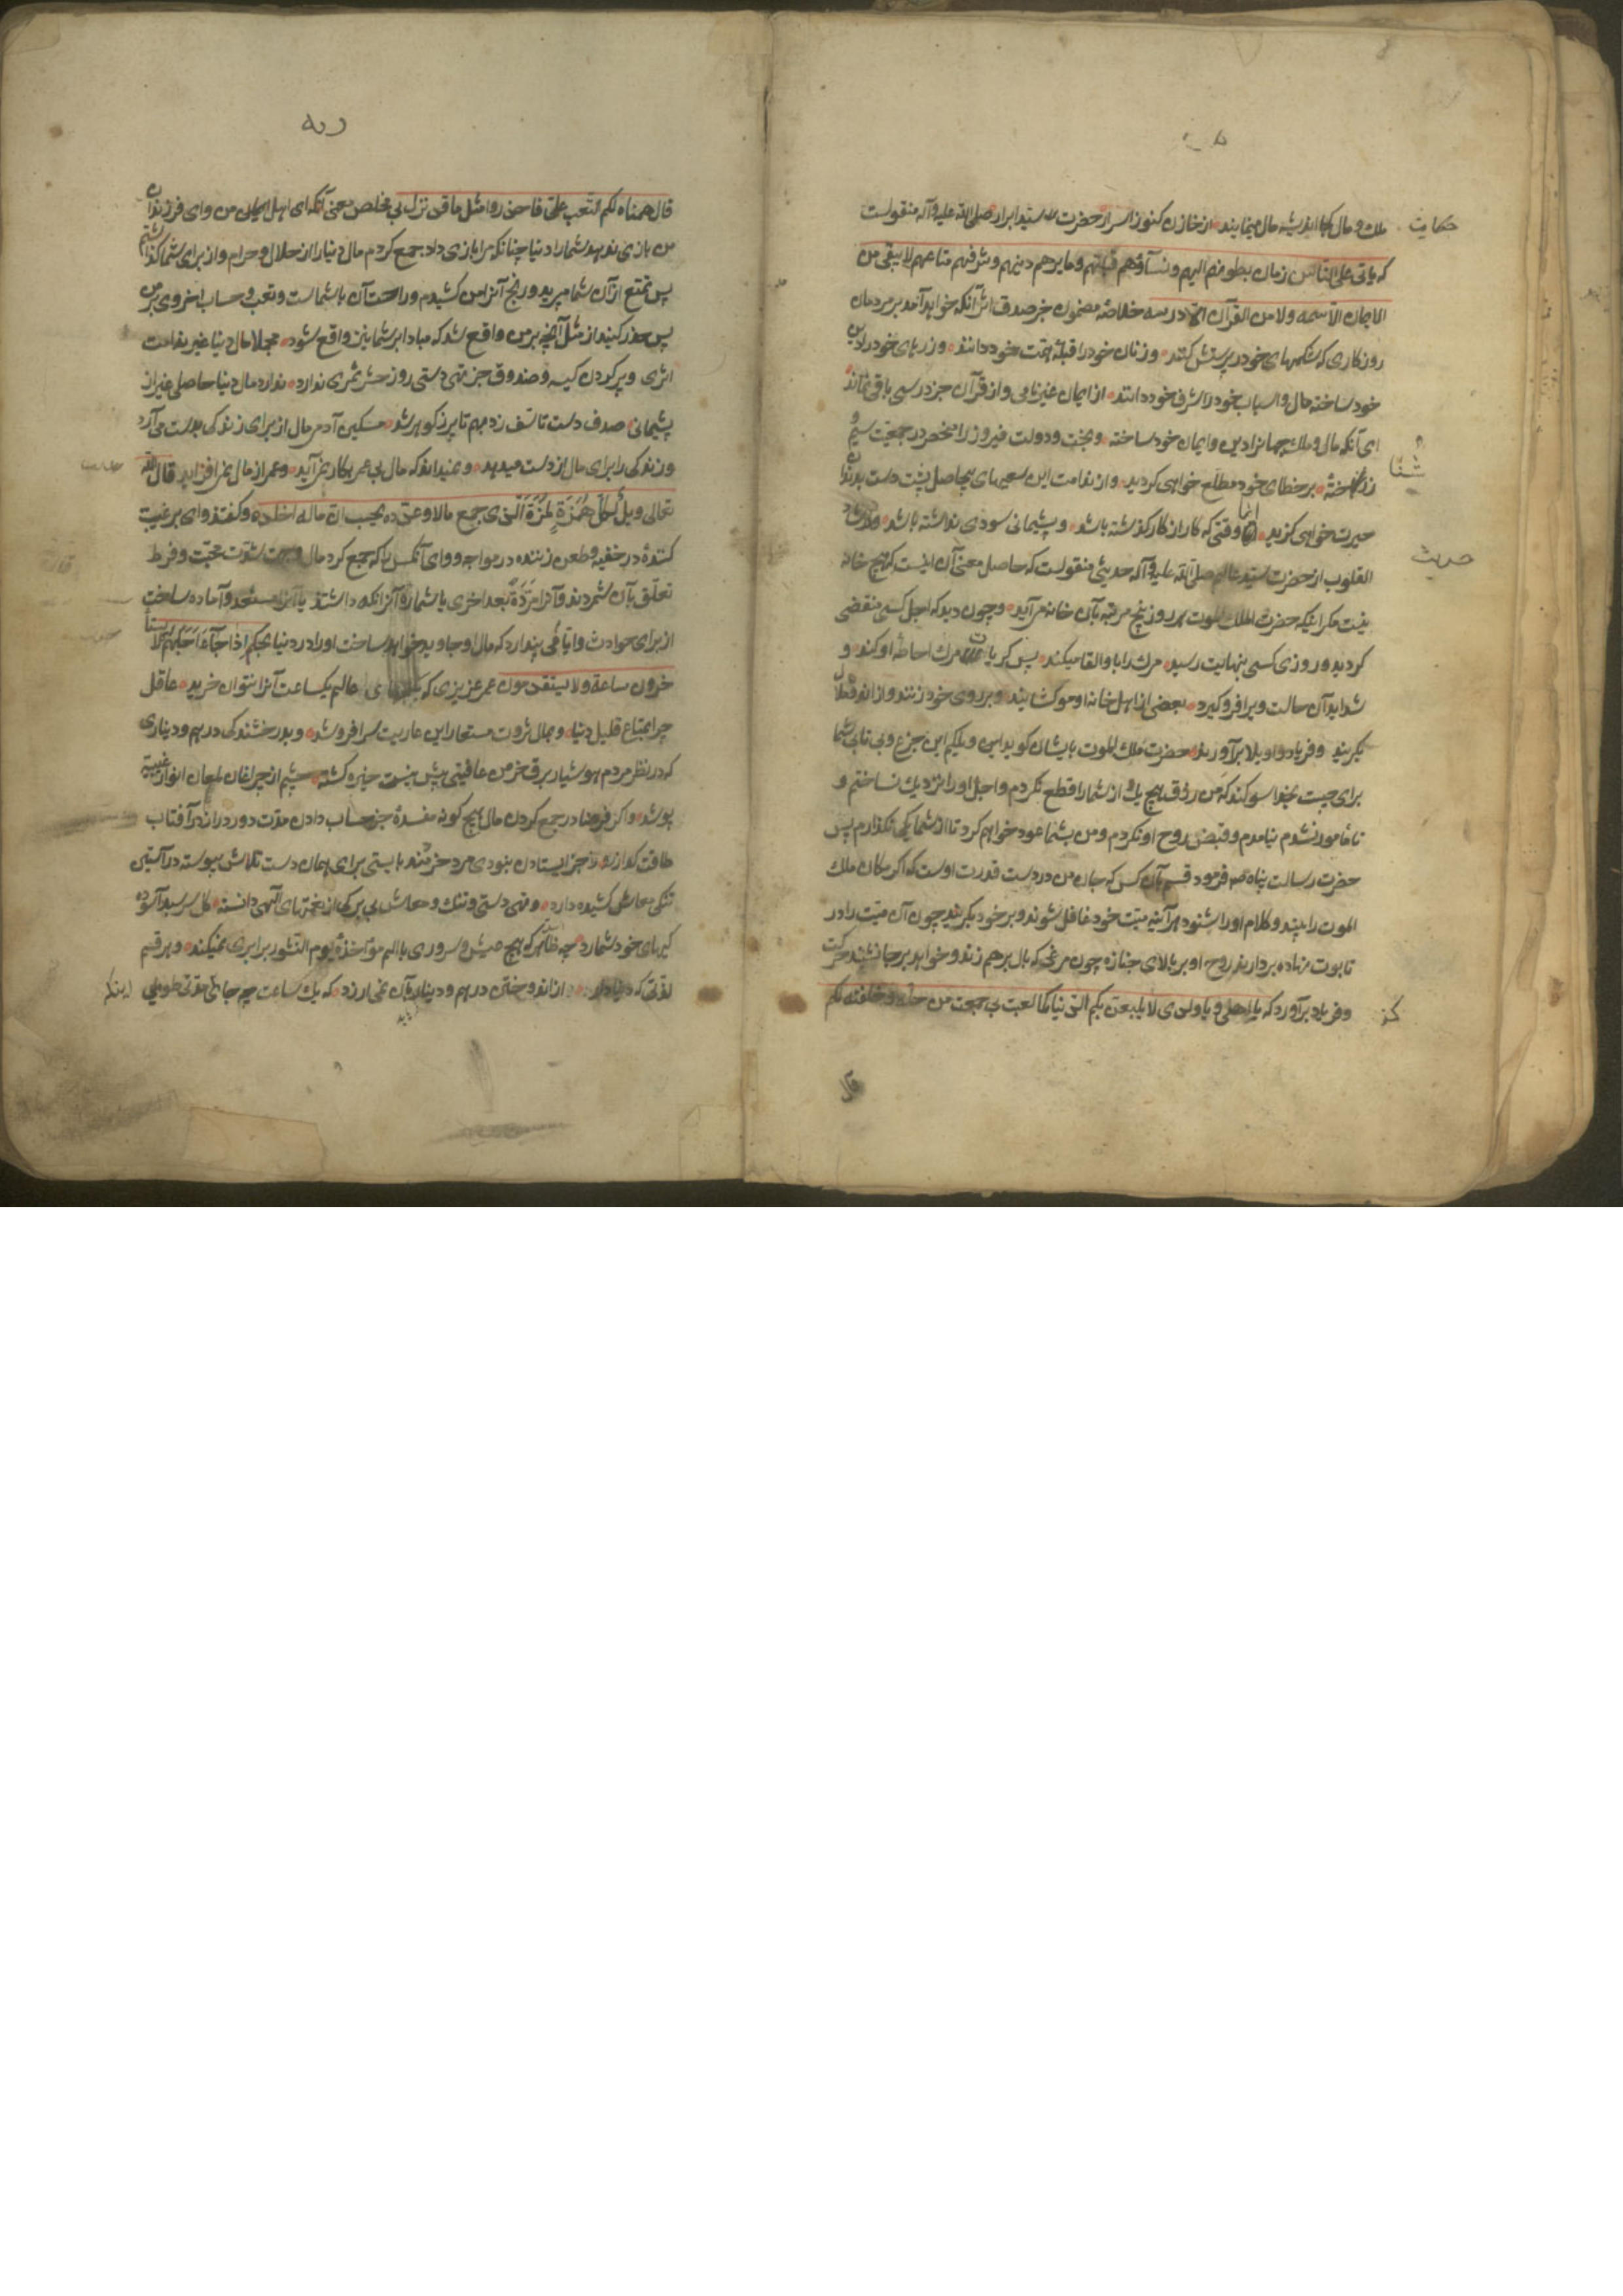 ملك و مال كجا اندیشه مال مینمایند از خازن كنوز اسرار حضرت سید ابرار صلی الله علیه وآله منقولست
حکایت
که یاتی علی الناس زمان بطونهم الههم و نسآؤهم قبلتهم و دنانیرهم دینهم و شرفهم متاعهم لا یبقی من
الایمان الا اسمه ولا من القرآن الا درسه خلاصهٔ مضمون خبر صدق اثر آنکه خواهد آمد بر مردمان
روزکاری که شکمهای خود پرستش کنند و زنان خود را قبلهٔ همت خود دانند و زرهای خود را دین
خود ساخته مال و اسباب خود را شرف خود دانند از ایمان غیر نامی و از قرآن جز درسی باقی نماند
ای آنکه مال و ملك جهانرا دین و ایمان خود ساخته و بخت و دولت فیروز را منحصر در جمعیت سیم و
زر شناخته بر خطای خود مطلع خواهی کردید و از ندامت این سعیهای بیحاصل پشت دست بدندان
حیرت خواهی کزید اما وقتی که کار از کار کذشته باشد و پشیمانی سودی نداشته باشد و در ارشاد
القلوب از حضرت سید عالم صلی الله علیه وآله حدیثی منقولست که حاصل معنی آن اینست که هیچ خانه
حدیث
نیست مکر اینکه حضرت ملك الموت هر روز پنج مرتبه بآن خانه می آید و چون دید که اجل کسی منقضی
کردید و روزی کسی بنهایت رسید مرك را با و القا میکند پس کربات مرك احاطهٔ او کند و
شداید آن حالت ویرا فرو کیرد بعضی از اهل خانه او مو کشایند و بر روی خود زنند و از اندوه
بکریند و فریاد واویلا برآورند حضرت ملك الموت بایشان کوید این ویلکم این جزع و بی تابی شما
برای چیست بخدا سوکند که من رزق هیچ یك از شما را قطع نکردم و اجل او را نزدیك نساختم و
تا مامور نشدم نیامدم و قبض روح او نکردم و من بشما عود خواهم کرد تا از شما یکی نکذارم پس
حضرت رسالت پناه فرمود قسم بآن کس که جان من در دست قدرت اوست که اکر مکان ملك
الموت را بینند و کلام او را شنود هر آینه میت خود غافل شوند و بر خود بکریند چون آن میت را در
تابوت نهاده بردارند روح او بر بالای جنازه چون مرغی که بال برهم زند و خواهد بر جا نشیند حرکت
کند و فریاد برآورد که یا اهلی و یا ولدی لا یلعبن بکم الدنیا کما لعبت بی جمعت من حله و خلفته لکم
قال
قال همناه لکم و التعب علی فاحذروا مثل ما قد نزل بی مخلص معنی آنکه ای اهل ایمان من و ای فرزندان
من بازی ندهد شما را دنیا چنانکه مرا بازی داد جمع کردم مال دنیا را از حلال و حرام و از برای شما کذاشتم
پس تمتع از آن شما میبرید و رنج آنرا من کشیدم و راحت آن با شماست و تعب و حساب اخروی بر من
پس حذر کنید از مثل آنچه بر من واقع شد که مبادا بر شما نیز واقع شود مجملا مال دنیا غیر ندامت
اثری و پر کردن کیسه و صندوق جز تهی دستی روز حشر ثمری ندارد ندارد مال دنیا حاصلی غیر از
پشیمانی صدف دست تاسف زد بهم تا پر ز کوهر شد مسکین آدمی مال از برای زندکی بدست می آرد
و زندکی را برای مال از دست میدهد و نمیداند که مال بی عمر بکار نمی آید و عمر از مال نمی افزاید قال الله
تعالی ویل لکل همزة لمزة الذی جمع مالا و عدده یحسب ان ماله اخلده و کفته وای بر غیبت
کنندهٔ در خفیه و طعن زننده در مواجه و وای آنکس را که جمع کرد مال و جهت شدت محبت و فرط
تعلق بآن شمردند و آنرا مرة بعد اخری یا شماره آنرا نکه داشتند یا آنرا مستعد و آماده ساخت
از برای حوادث و ایام می پندارد که مال او جاوید خواهد ساخت او را در دنیا بحکم اذا جآء اجلهم لا یستأ
خرون ساعة ولا یستقدمون عمر عزیزی که ببهای عالم یکساعت آنرا نتوان خرید عاقل
چرا بمتاع قلیل دنیا و بمال ثروت مستعار این عاریت سرا فروشد و بدرخشندکی درهم و دیناری
که در نظر مردم هوشیار برق خرمن عافیتی بیش نیست خیره کشته چشم از چراغان لمعان انوار غیبیه
پوشد و اکر فرضا در جمع کردن مال هیچ کونه مفسدهٔ جز حساب دادن مدت دور دراز در آفتاب
طاقت کداز روز جزا ایستادن نبودی مرد خردمند بایستی برای همان دست تلاش پیوسته در آستین
تنکی معاش کشیده دارد و تهی دستی و تنك معاش بی برکی از نعمتهای الهی دانسته کل سرسبد آسوده
کیهای خود شمارد چه ظاهر که هیچ عیش و سروری با الم مؤاخذهٔ یوم النشور برابری نمیکند و هر قسم
لذتی که دنیا دارد از اندوختن درهم و دینار بآن نمی ارزد که یك ساعت چه جای مدتی طویلی
اینکه